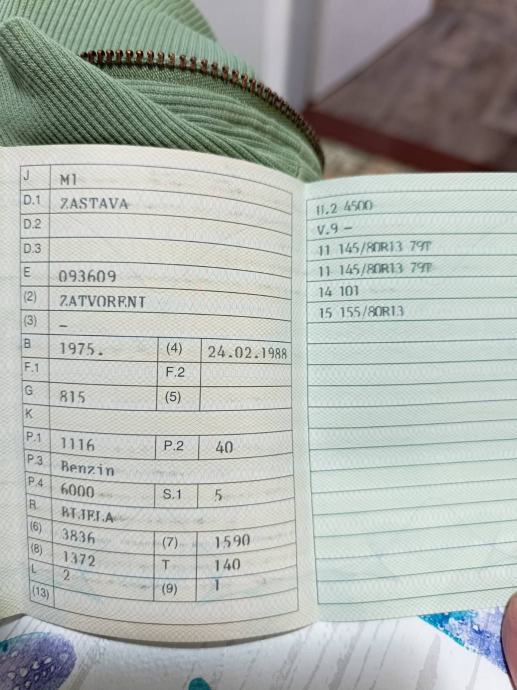 J M1
D.1 ZASTAVA
D.2
D.3
E 093609
(2) ZATVORENI
(3) –
B 1975. (4) 24.02.1988
F.1 F.2
G 815 (5)
K
P.1 1116 P.2 40
P.3 Benzin
P.4 6000 S.1 5
R BIJELA
(6) 3836 (7) 1590
(8) 1372 T 140
L 2 (9) 1
(13)
U.2 4500
V.9 –
11 145/80R13 79T
11 145/80R13 79T
14 101
15 155/80R13